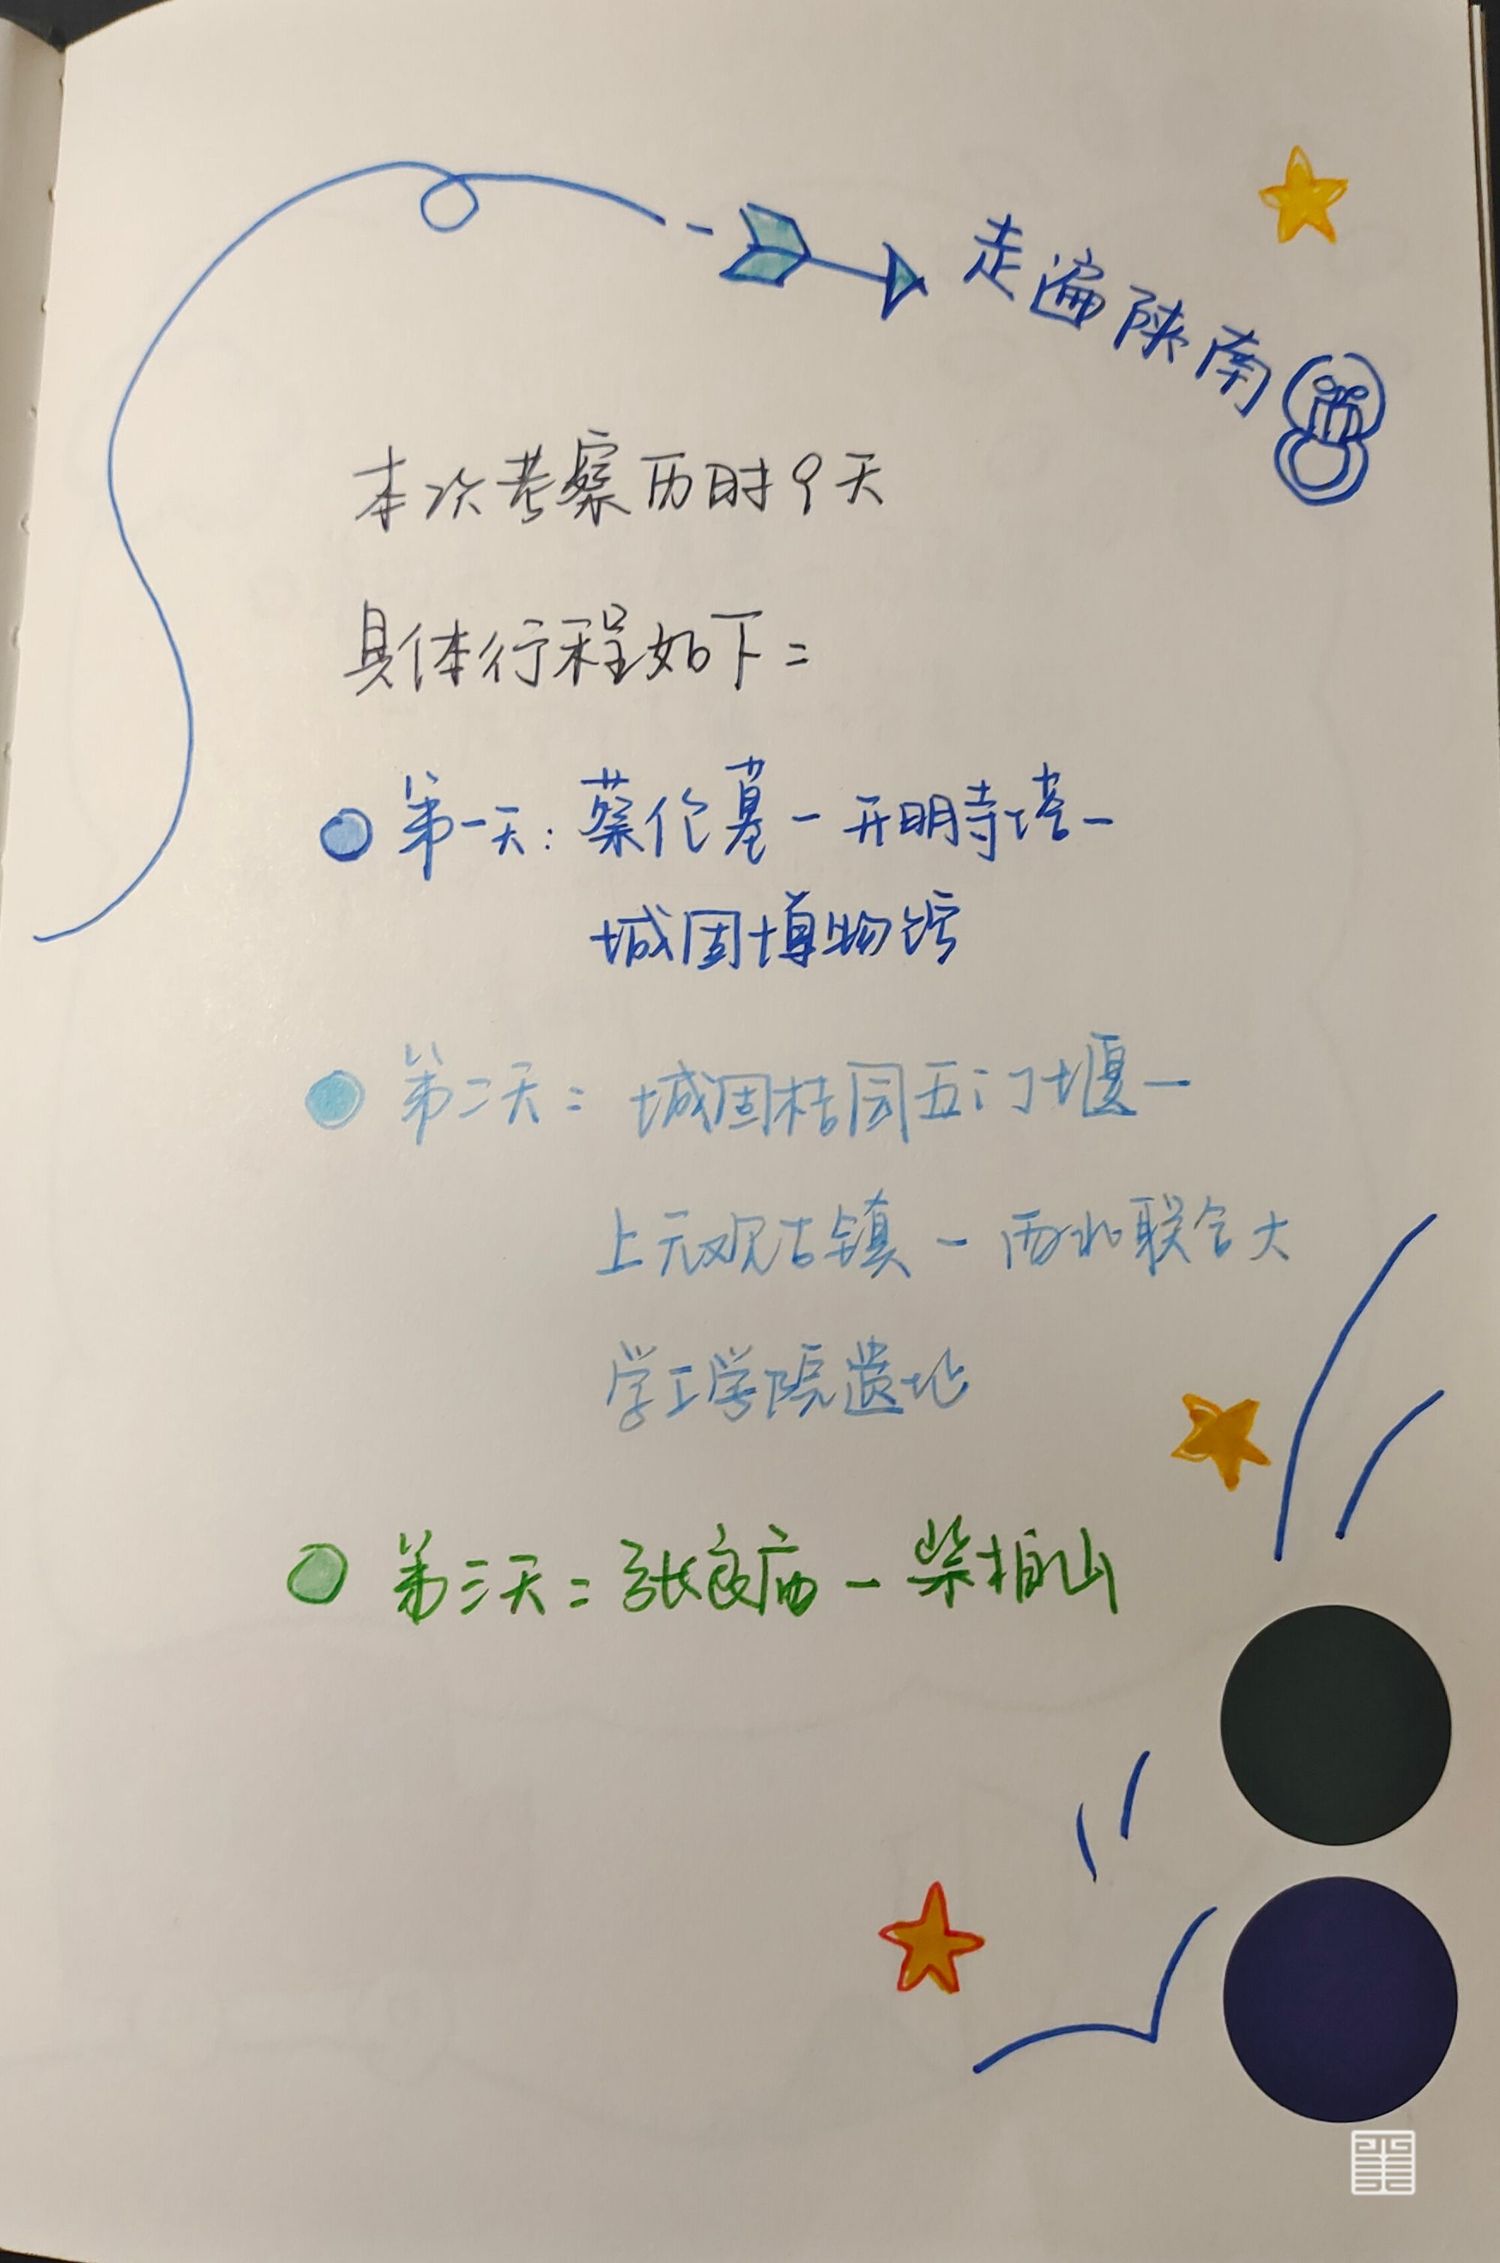 走遍陕南
本次考察历时9天
具体行程如下：
第一天：蔡伦墓－开明寺塔－
城固博物馆
第二天：城固桔园五门堰－
上元观古镇－西北联合大
学工学院遗址
第三天：张良庙－紫柏山